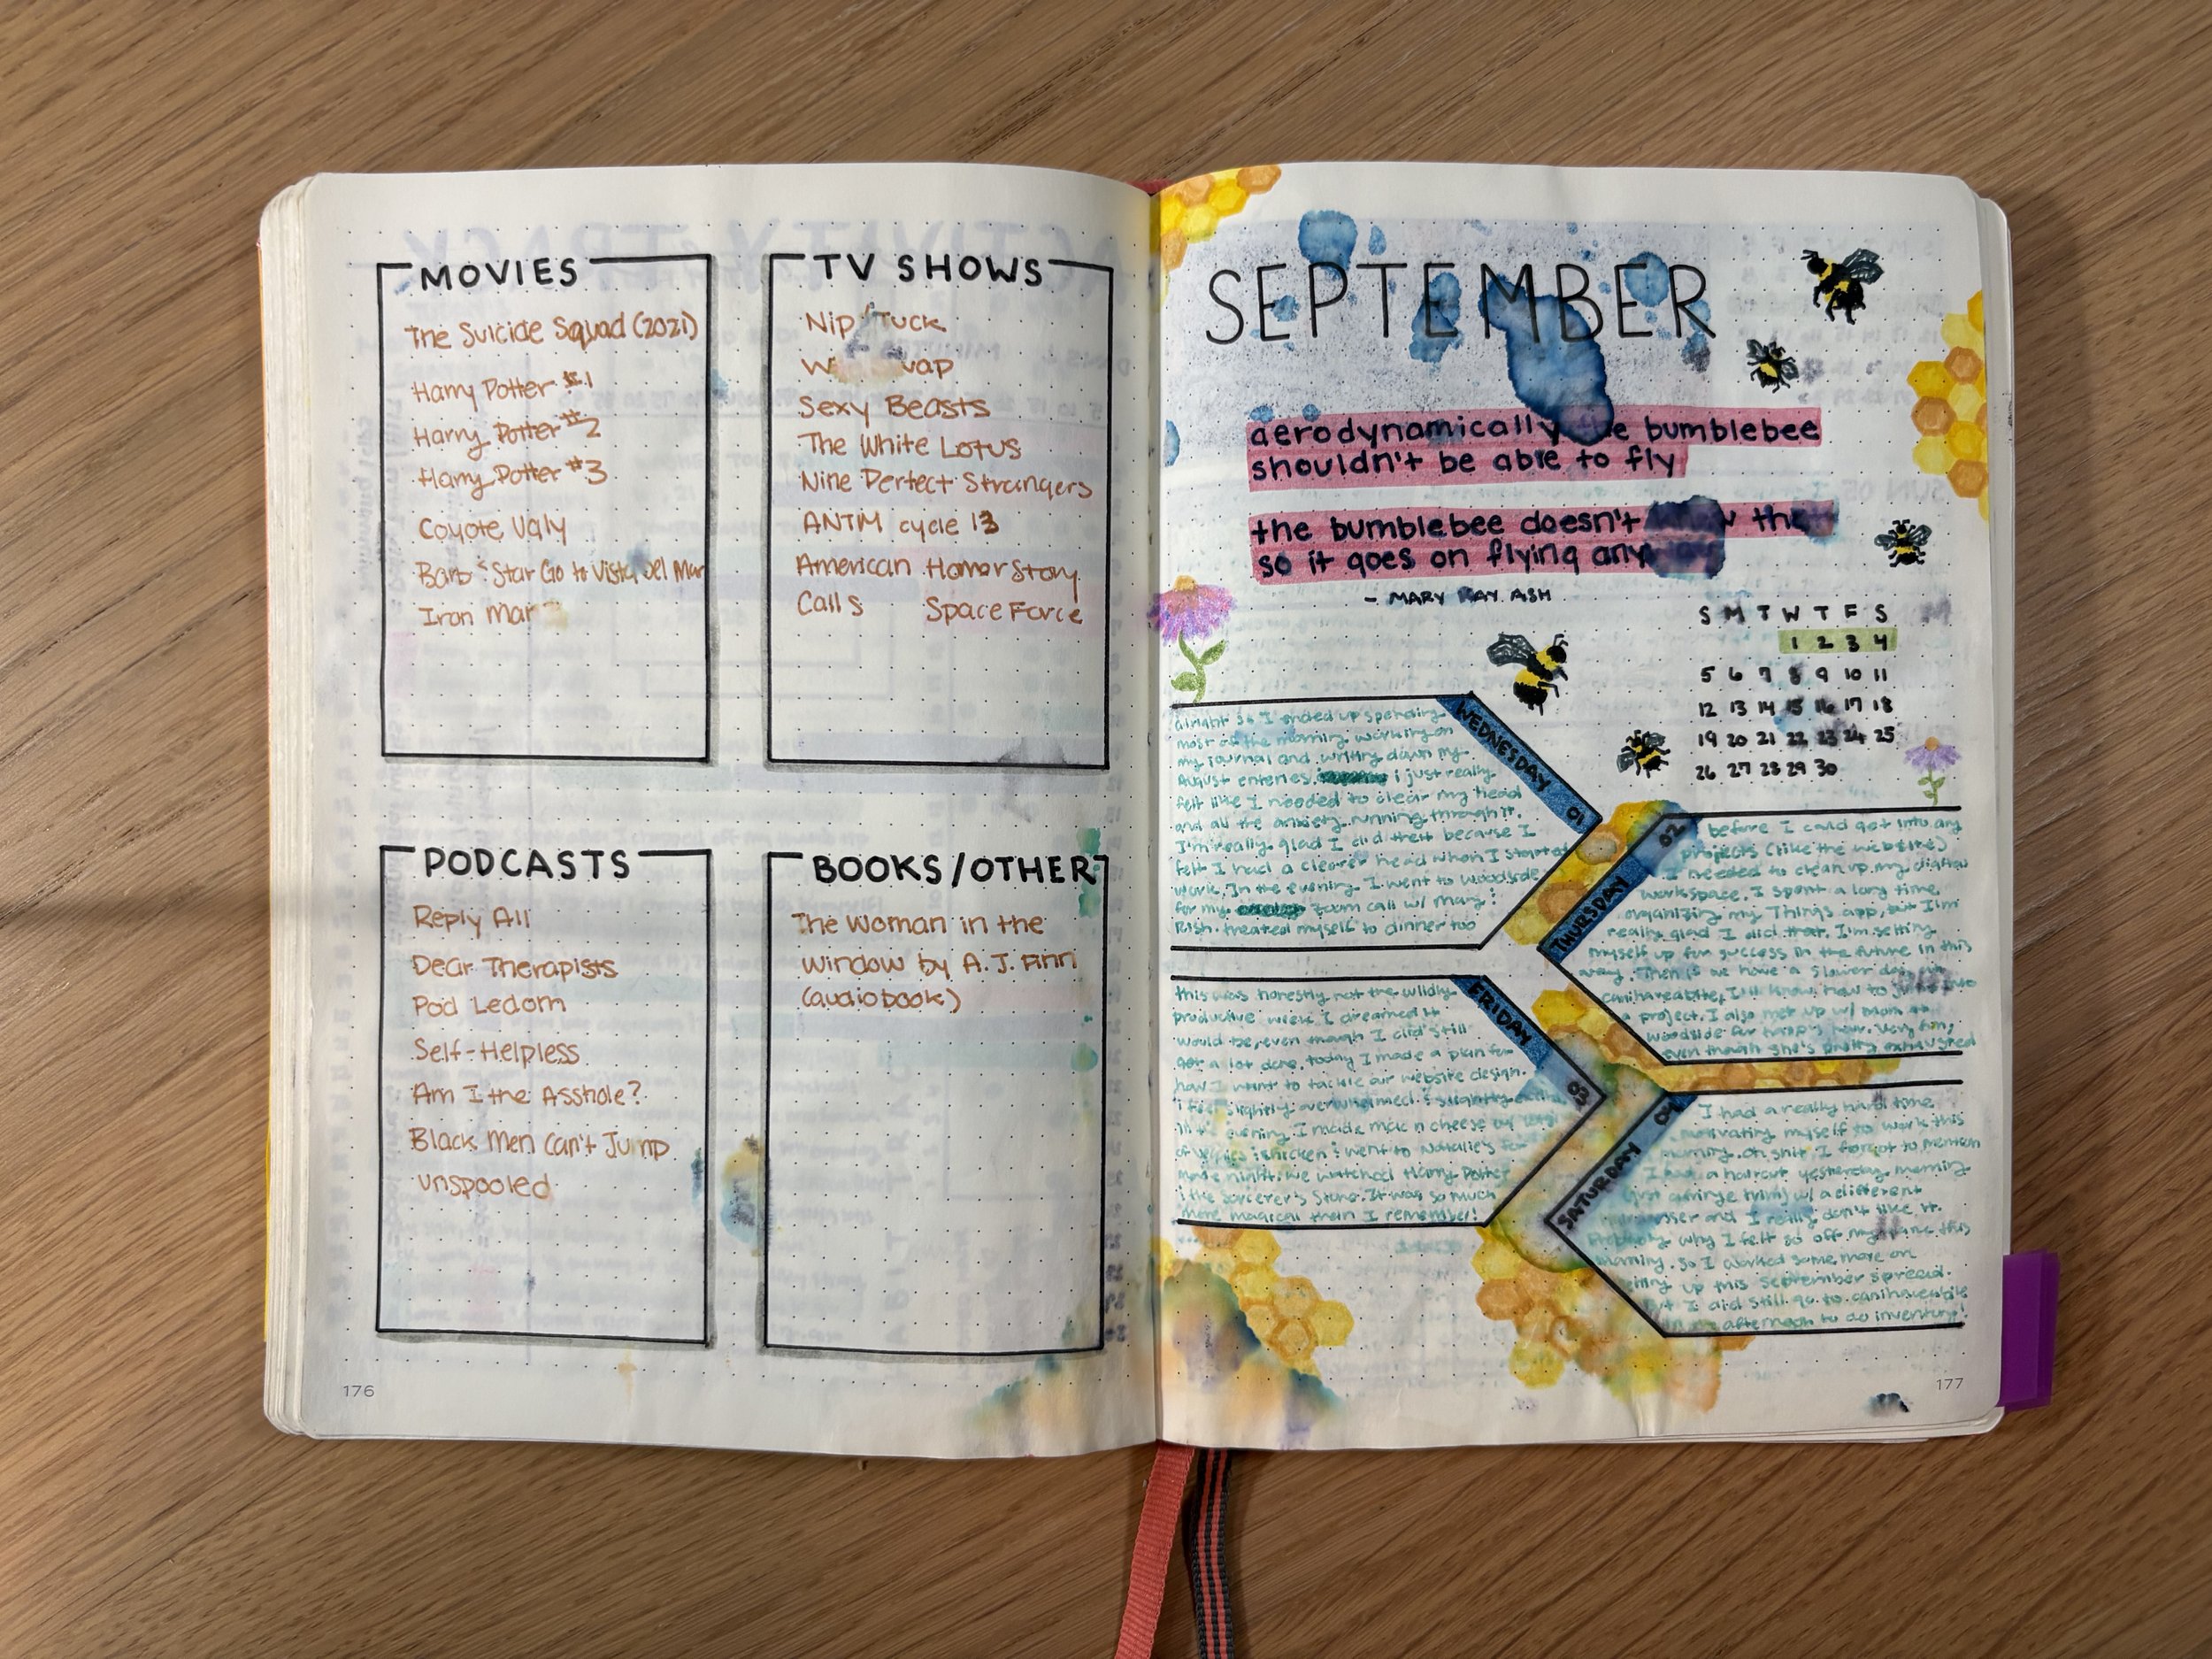 MOVIES
The Suicide Squad (2021)
Harry Potter #1
Harry Potter #2
Harry Potter #3
Coyote Ugly
Barb & Star Go to Vista Del Mar
Iron Man
TV SHOWS
Nip/Tuck
Sexy Beasts
The White Lotus
Nine Perfect Strangers
ANTM cycle 13
American Horror Story
Calls Space Force
PODCASTS
Reply All
Dear Therapists
Pod Ledom
Self-Helpless
Am I the Asshole?
Black Men Can't Jump
unspooled
BOOKS/OTHER
The Woman in the
Window by A.J. Finn
(audiobook)
176
SEPTEMBER
aerodynamically the bumblebee
shouldn't be able to fly
the bumblebee doesn't know that
so it goes on flying any
- MARY KAY ASH
S M T W T F S
1 2 3 4
5 6 7 8 9 10 11
12 13 14 15 16 17 18
19 20 21 22 23 24 25
26 27 28 29 30
WEDNESDAY 01
alright so I ended up spending
most of the morning working on
my journal and writing down my
August enteries i just really
felt like I needed to clear my head
and all the anxiety running through it.
I'm really glad I did that because I
felt I had a clearer head when I started
work. In the evening I went to Woodside
for my zoom call w/ Mary &
Rish. treated myself to dinner too
THURSDAY 02
before I could get into any
projects (like the website)
I needed to clean up my digital
workspace. I spent a long time
organizing my Things app, but I'm
really glad I did that. I'm setting
myself up for success in the future in this
way. Then if we have a slower day in
canihaveabite, I'll know how to into
a project. I also met up w/ Mom at
Woodside for happy hour. Very fun,
even though she's pretty exhausted
FRIDAY 03
this was honestly not the wildly
productive week I dreamed it
would be, even though I did still
get a lot done. today I made a plan for
how I want to tackle our website design.
I feel slightly overwhelmed & slightly
in the evening I made mac n cheese w/
of veggies & chicken & went to Natalie's for
movie night. we watched Harry Potter
& the Sorcerer's Stone. It was so much
more magical than I remember!
SATURDAY 04
I had a really hard time
motivating myself to work this
morning. oh shit I forgot to mention
I had a haircut yesterday morning
(just a fringe trim) w/ a different
and I really don't like it.
Probably why I felt so off my game this
morning. so I worked some more on
setting up this September spread.
But I did still go to canihaveabite
in the afternoon to do inventory!
177